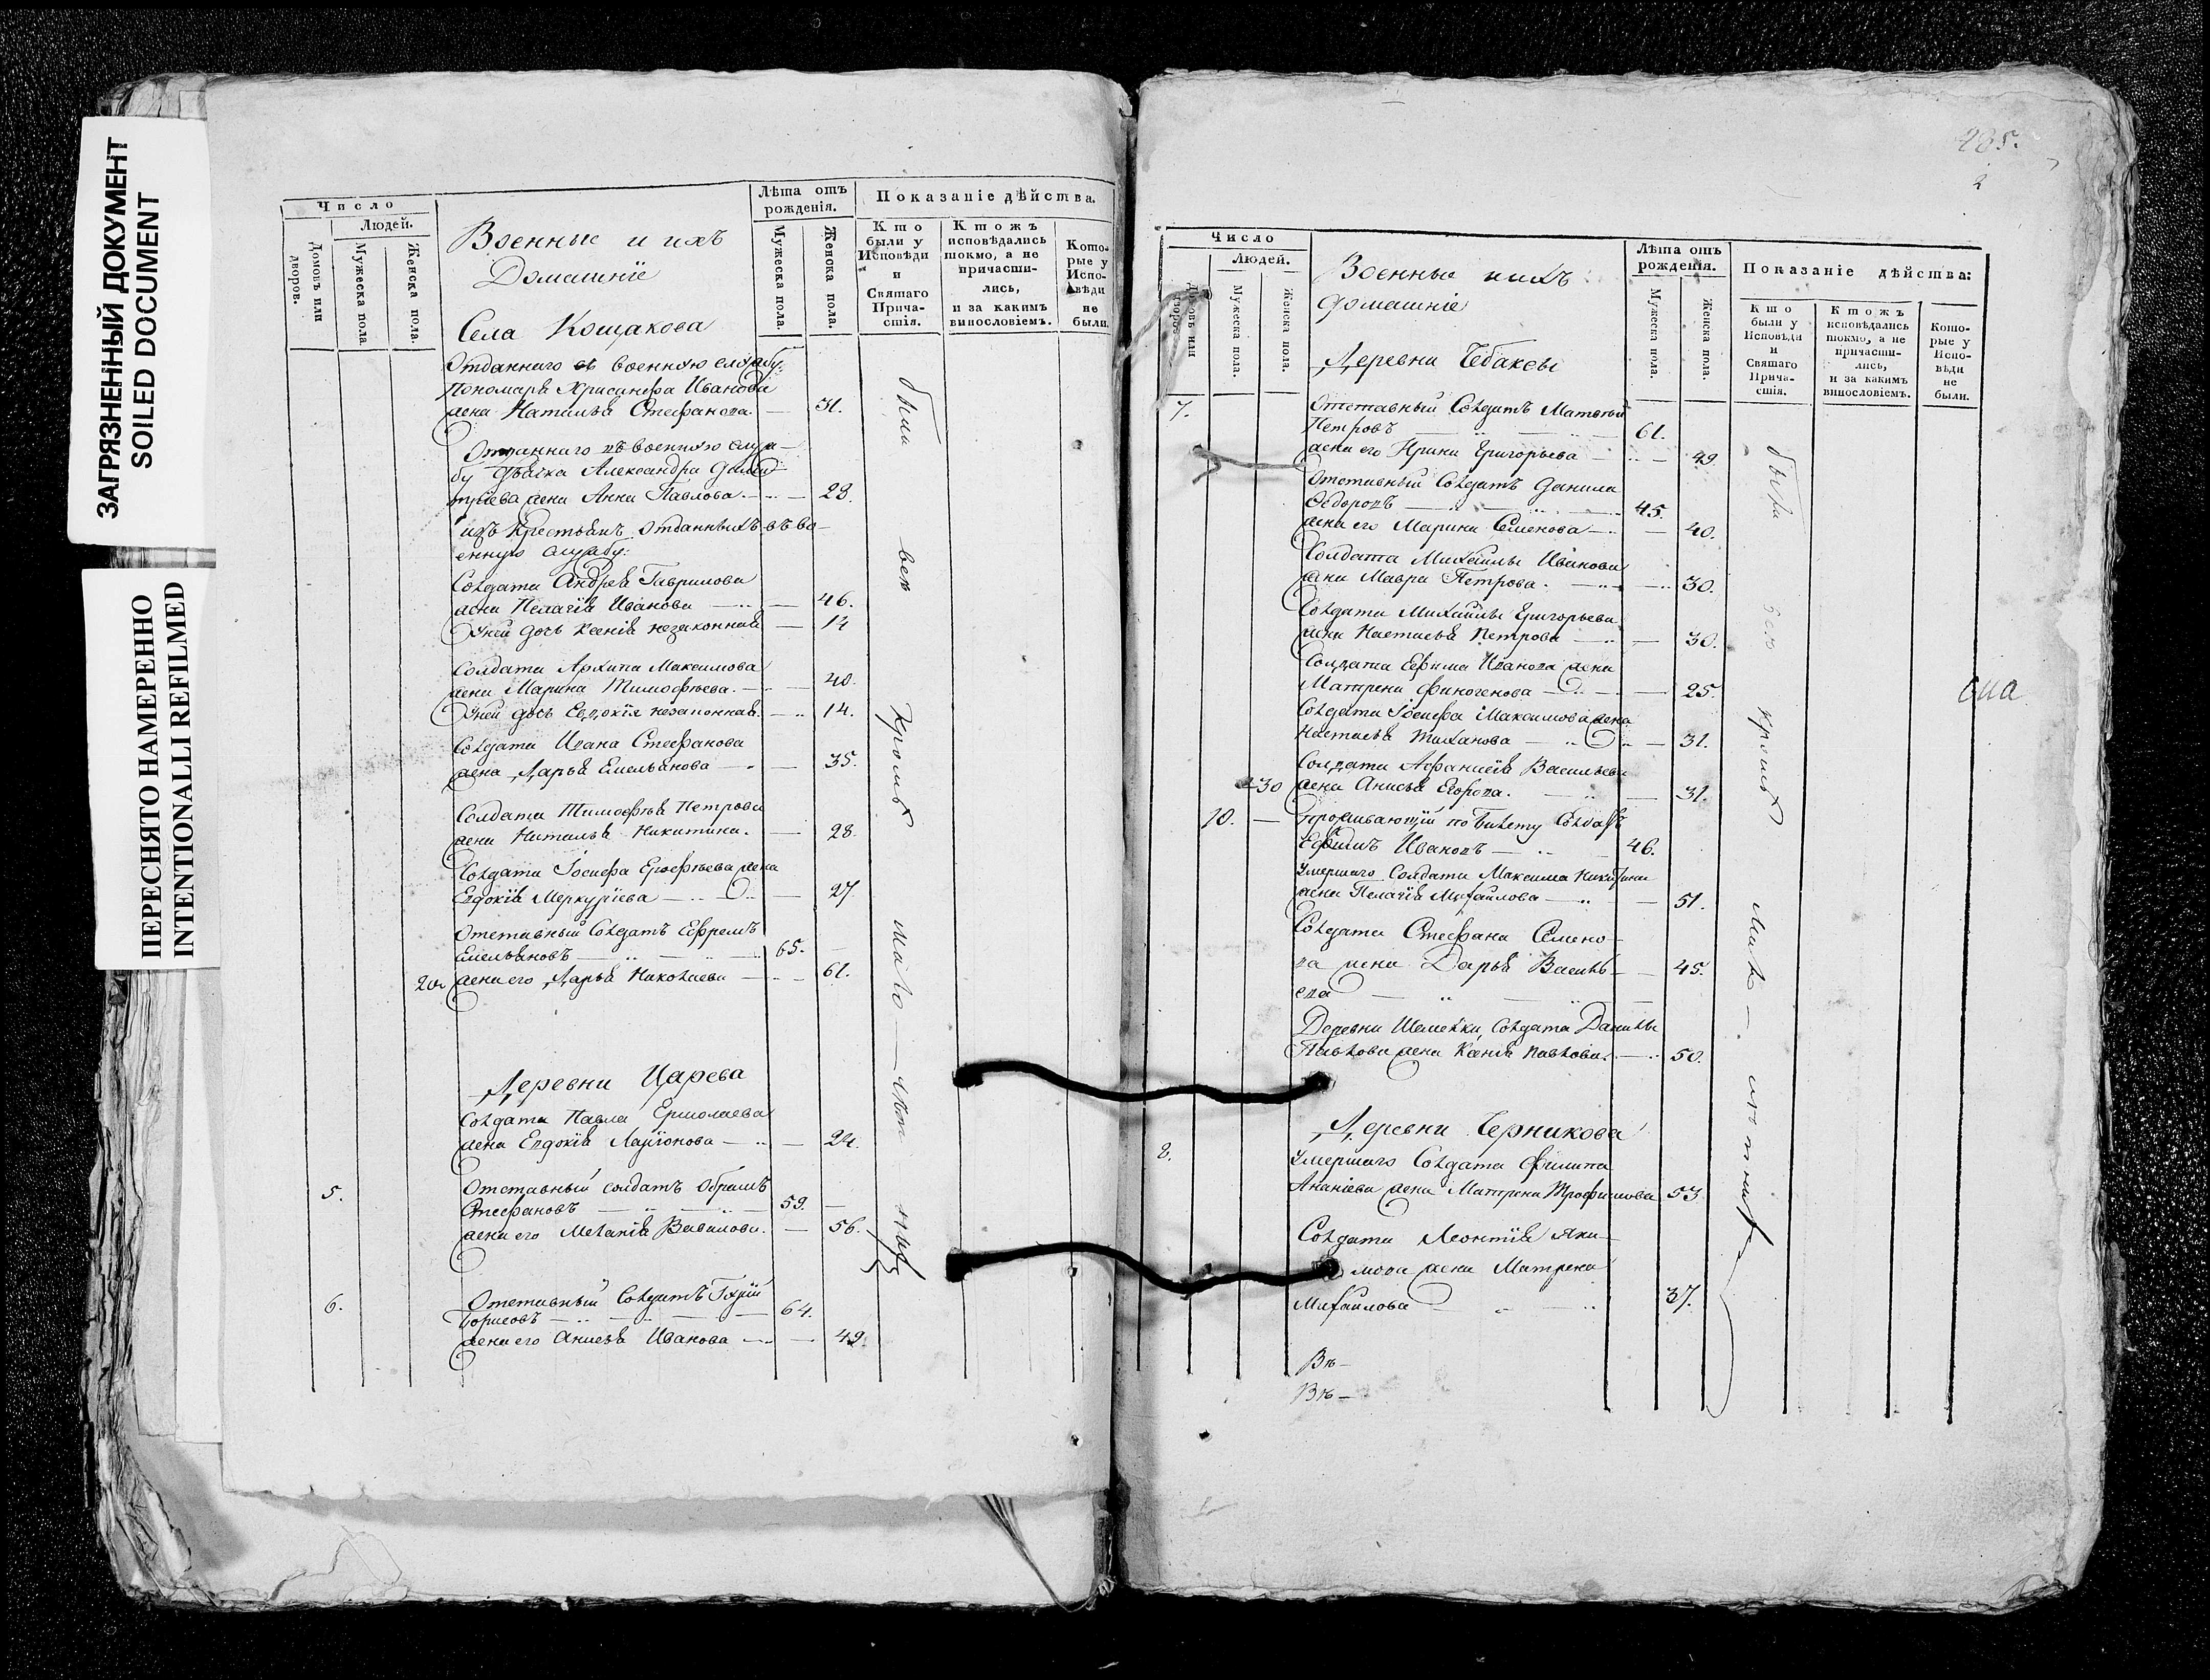 ЗАГРЯЗНЕННЫЙ ДОКУМЕНТ
SOILED DOCUMENT
ПЕРЕСНЯТО НАМЕРЕННО
INTENTIONALLI REFILMED
Число
Людей.
Домовъ или дворов.
Мужеска пола.
Женска пола.
Военные и ихъ
Домашнїе
Села Кощакова
Лѣта отъ
рожденія.
Мужеска пола.
Женска пола.
Показаніе дѣйства.
Кто
были у
Исповѣди
и
Святаго
Прича-
стія.
Ктожъ
исповѣдались
токмо, а не
причасти-
лись,
и за какимъ
винословіемъ.
Кото-
рые у
Испо-
вѣди
не
были.
Отданнаго въ военную службу
Пономаря Хрисанфа Иванова
жена Наталья Стефанова 31.
Отданнаго въ военную служ-
бу Дьячка Александра Дими
трїева жена Анна Павлова 28.
изъ Крестьянъ отданныхъ въ во-
енную службу:
Солдата Андрея Гаврилова
жена Пелагїя Иванова 46.
У ней дочь Ксенїя незаконная 14
Солдата Архипа Максимова
жена Марина Тимофѣева. 40.
У ней дочь Евдокїя незаконная. 14.
Солдата Ивана Стефанова
жена Дарья Емельянова 35.
Солдата Тимофѣя Петрова
жена Наталья Никитина. 28.
Солдата Іосифа Ерофѣева жена
Евдокїя Меркурїева 27
Отставный Солдатъ Ефремъ
Емельяновъ 65.
жена его Дарья Николаева 61.
Деревни Царева
Солдата Павла Ермолаева
жена Евдокїя Ларїонова 24.
5. Отставный солдатъ Абрамъ
Стефановъ 59.
жена его Меланїя Вавилова. 56.
6. Отставный Солдатъ
Борисовъ 64.
жена его Анисья Иванова 49.
были
всѣ
Кромѣ
мало
лѣт
нихъ
285.
2
Число
Людей.
Домовъ или дворов.
Мужеска пола.
Женска пола.
Военные и ихъ
домашнїе
Деревни Чебаксы
Лѣта отъ
рожденія.
Мужеска пола.
Женска пола.
Показаніе дѣйства:
Кто
были у
Исповѣди
и
Святаго
Прича-
стія.
Ктожъ
исповѣдались
токмо, а не
причасти-
лись,
и за какимъ
винословіемъ.
Кото-
рые у
Испо-
вѣди
не
были.
7. Отставный Солдатъ Матвѣй
Петровъ 61.
жена его Ирина Григорьева 49.
Отставный Солдатъ Данила
Ѳедоровъ 45.
жена его Марина Семенова 40.
Солдата Михайлы Иванова
жена Мавра Петрова. 30.
Солдата Михайлы Григорьева
жена Настасья Петрова 30.
Солдата Ефима Иванова жена
Матрена Финогенова 25.
Солдата Іосифа Максимова жена
Настасья Тиханова 31.
Солдата Афанасїя Васильева
жена Анисья Егорова. 31.
10. Проживающїй по билету Солдатъ
Ефимъ Ивановъ 46.
Умершаго Солдата Максима Никитина
жена Пелагїя Михайлова 51.
Солдата Стефана Семено-
ва жена Дарья Василь- 45.
ева
Деревни Шемѣки, Солдата Данилы
Павлова жена Ксенїя Павлова. 50.
Деревни Черникова
8. Умершаго Солдата Филипа
Ананїева жена Матрена Трофимова 53
Солдата Леонтїя Яки-
мова жена Матрена
Михайлова 37.
Въ-
Въ-
были
всѣ
кромѣ
мало-
лѣтнихъ